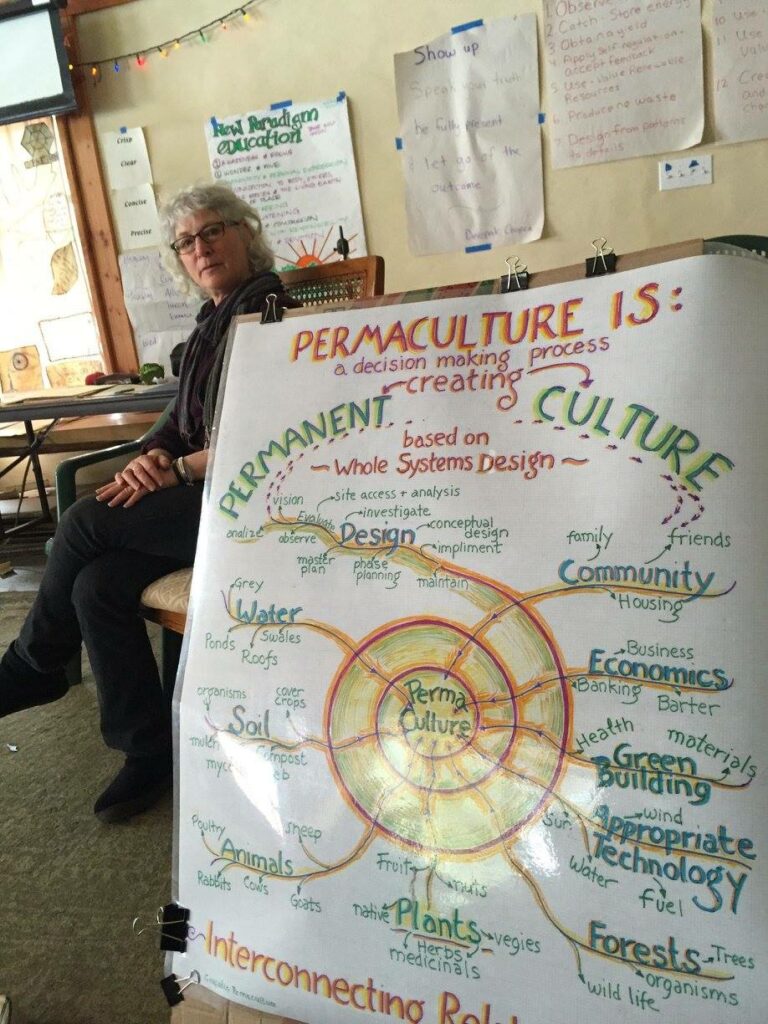 Crisp
Clear
Concise
Precise
New Paradigm
education
Show up
Speak your truth
be fully present
& let go of the
outcome
1 Observe
2 Catch + Store energy
3 Obtain a yield
4 Apply self regulation +
accept feedback
5 Use + Value Renewable
Resources
6 Produce no waste
7 Design from patterns
to details
10 Use
11 Use
Valu
12 Crea
and
to
PERMACULTURE IS:
a decision making process
creating
PERMANENT CULTURE
based on
~ Whole Systems Design ~
vision
site access + analysis
Evaluate
investigate
analize
observe
Design
conceptual
design
impliment
master
plan
phase
planning
maintain
family
friends
Community
Housing
Grey
Water
Ponds
Swales
Roofs
Business
Economics
Banking
Barter
Perma
Culture
organisms
cover
crops
Soil
mulch
compost
Health
materials
Green
Building
Sun
wind
Appropriate
Technology
Water
Fuel
Poultry
sheep
Animals
Rabbits
Cows
Goats
Fruit
nuts
native
Plants
vegies
Herbs
medicinals
Forests
Trees
organisms
wild life
Interconnecting Rel